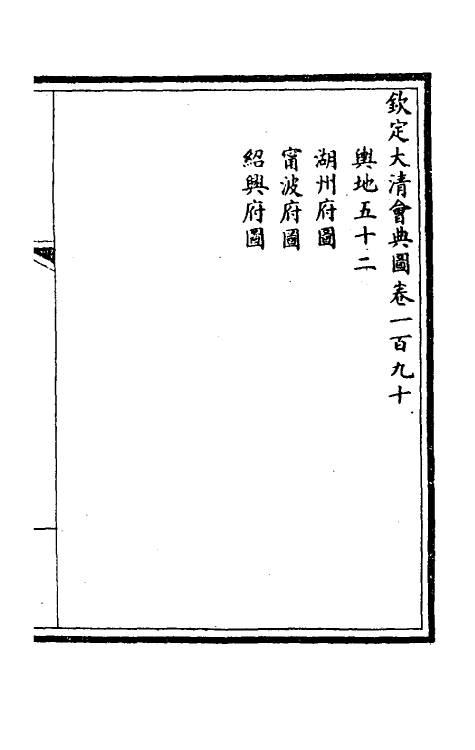 欽定大清會典圖卷一百九十
輿地五十二
湖州府圖
甯波府圖
紹興府圖